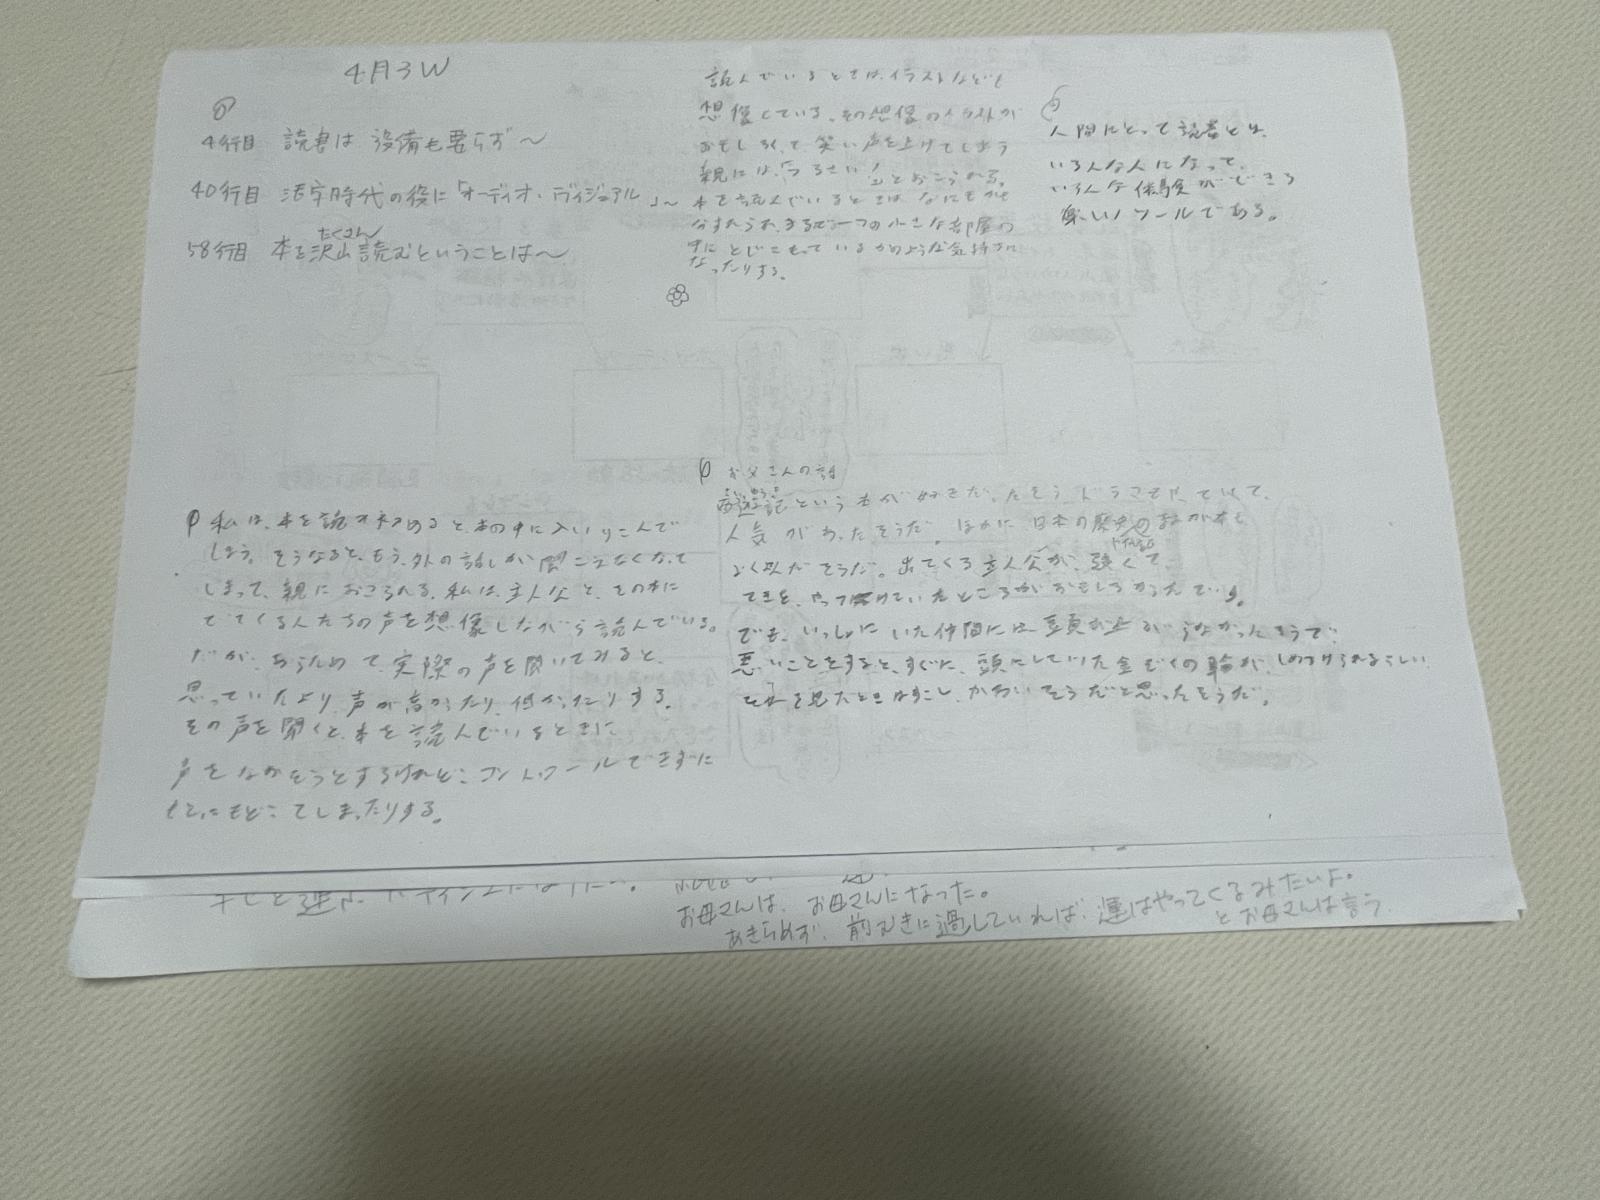 4月3W
4行目 読書は設備も要らず〜
40行目 活字時代の役に「オーディオ・ヴィジュアル」〜
たくさん
58行目 本を沢山読むということは〜
読んでいるときは、イラストなども
想像している。その想像のイラストが
おもしろくて笑い声を上げてしまう
親には、「うるさい!」とおこられる。
本を読んでいるときは、なにもかも
わすれられ、まるで一つの小さな部屋の
中に とじこもっているかのような気持ちに
なったりする。
人間にとって読書とは、
いろんな人になって、
いろんな体験ができる
楽しいツールである。
私は、本を読み初めると、本の中に入いりこんで
しまう。そうなると、もう、外の話しが聞こえなくなって
しまって、親におこられる。私は、主人公と、その本に
でてくる人たちの声を想像しながら読んでいる。
だが、あらためて、実際の声を聞いてみると、
思っていたより、声が高かったり、低かったりする。
その声を聞くと、本を読んでいるときに
声をなおそうとするけれど、コントロールできずに
もとにもどってしまったりする。
お父さんの話
さいゆうき
西遊記という本が好きだったそう、ドラマでやっていて、
人気があったそうだ。ほかに日本の歴史のまんが本も
よく読んだそうだ。出てくる主人公が、強くて、
てきを、やっつけていたところがおもしろかったです。
でも、いっしょにいた仲間には頭が上がらなかったそうで、
悪いことをすると、すぐに、頭にしていた金ぞくの輪が、しめつけられるらしい
それを見たときはすこし、かわいそうだと思ったそうだ。
お母さんは、お母さんになった。
あきらめず、前むきに過していれば、運はやってくるみたいよ。
とお母さんは言う